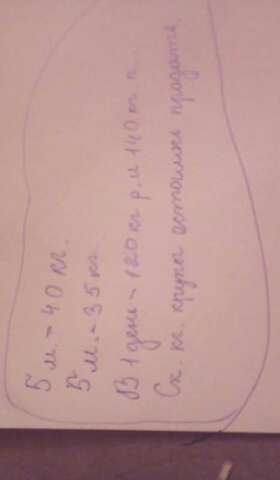 5 м. - 40 кг.
5 м. - 35 кг.
В 1 день - 120 кг р. и 140 кг п.
Ск. кг. крупы осталось продать.